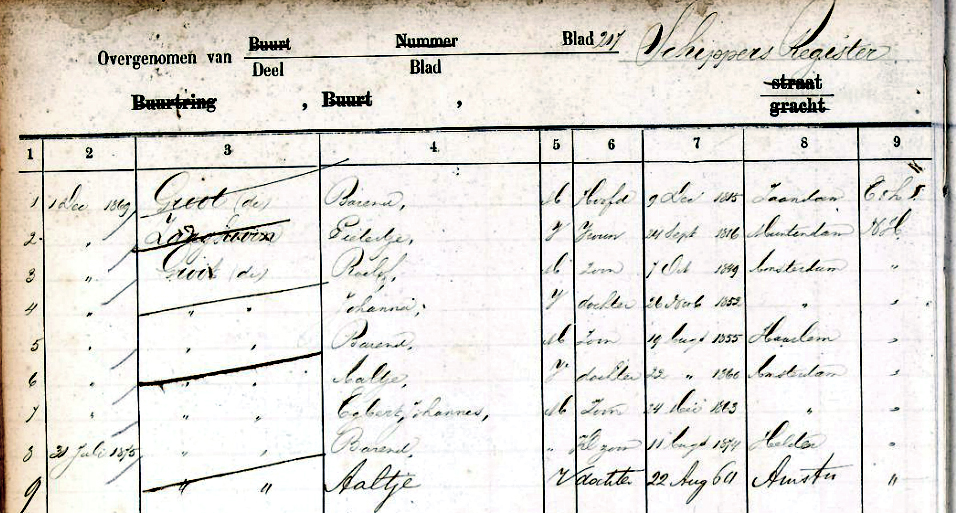 Overgenomen van Buurt Deel Nummer Blad Blad 217 Schippers Register
Buurtring , Buurt , straat gracht
1 2 3 4 5 6 7 8 9
1 1 Dec 1869 Groot (de) Barend, M Hoofd 9 Dec 1815 Zaandam
2 " Pietertje, V Vrouw 24 Sept 1816 Muntendam N H
3 " Groot (de) Roelof, M Zoon 7 Oct 1849 Amsterdam "
4 " " " Johanna, V dochter 26 1852 " "
5 " " " Barend, M Zoon 19 Augt 1855 Haarlem "
6 " " " Aaltje, V dochter 22 " 1860 Amsterdam "
7 " " " Egbert Johannes, M Zoon 24 1863 " "
8 21 Juli 1875 " " Barend, " Kl zoon 11 Augt 1874 Helder "
9 " " Aaltje V dochter 22 Aug 60 Amstm "